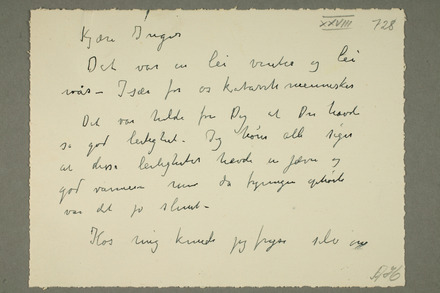 XXVIII 128
Kjære Inger
Det var en lei vinter og lei
vår – Især for os katarrh mennesker
Det var held for Dig at Du havde
så god leilighet. Jeg hører alle siger
at disse leiligheter havde en jævn og
god varme men da fyringen ophørte
var det jo slut –
Hos mig kunde jeg fryse selv om